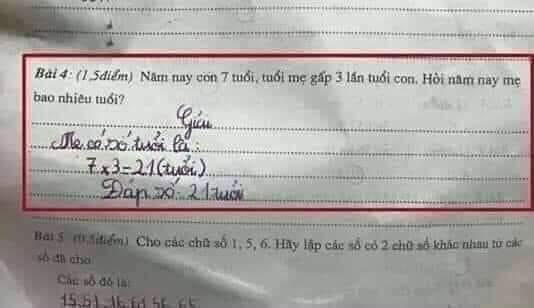 Bài 4: (1,5điểm) Năm nay con 7 tuổi, tuổi mẹ gấp 3 lần tuổi con. Hỏi năm nay mẹ
bao nhiêu tuổi?
Giải
Mẹ có số tuổi là:
7 x 3 = 21 (tuổi)
Đáp số: 21 tuổi
Bài 5: (0,5điểm) Cho các chữ số 1, 5, 6. Hãy lập các số có 2 chữ số khác nhau từ các
số đã cho
Các số đó là:
15, 51, 16, 61, 56, 65